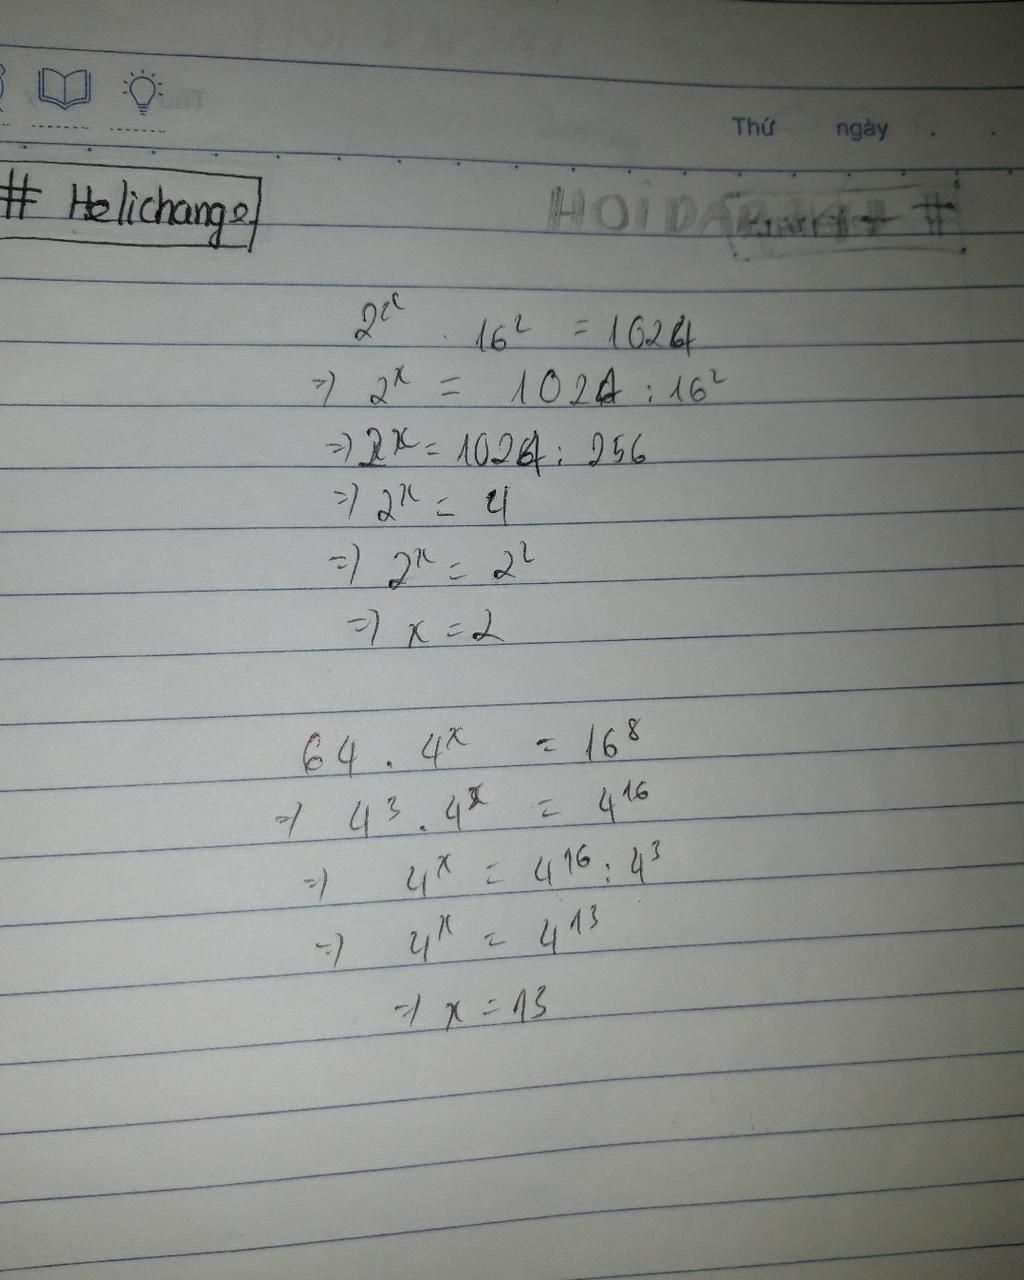 Thứ ngày . .
# Helichange
2ˣ . 16² = 1024
=> 2ˣ = 1024 : 16²
=> 2ˣ = 1024 : 256
=> 2ˣ = 4
=> 2ˣ = 2²
=> x = 2
64 . 4ˣ = 16⁸
=> 4³ . 4ˣ = 4¹⁶
=> 4ˣ = 4¹⁶ : 4³
=> 4ˣ = 4¹³
=> x = 13